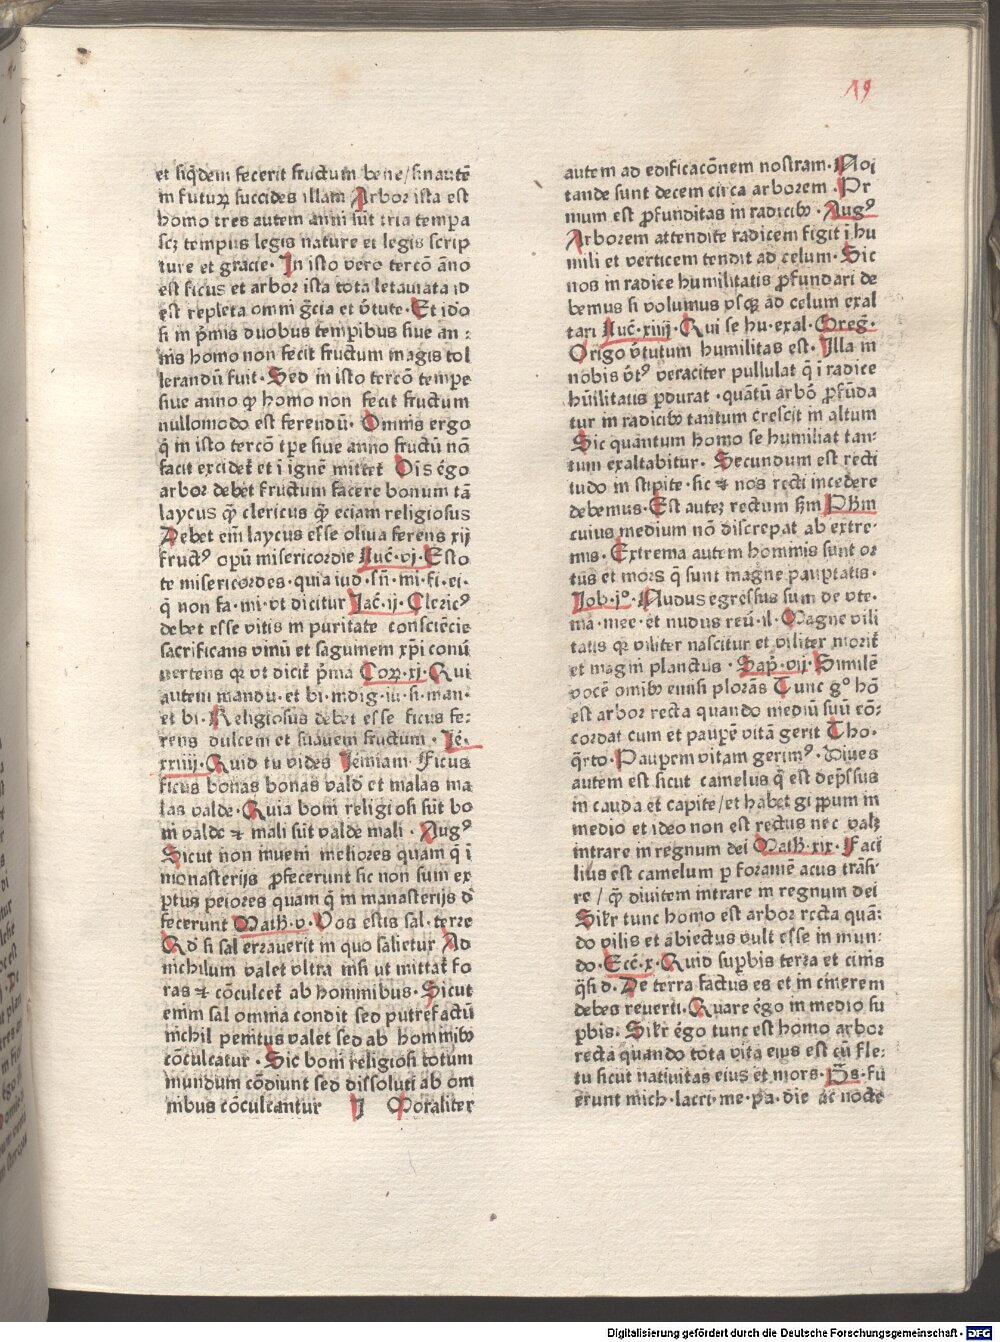 19
et siq̄dem fecerit fructum bene/sin autē
in futuꝝ succides illam Arbor ista est
homo tres autem anni sūt tria tempa
scꝫ tempus legis nature et legis scrip
ture et gracie· In isto vero tercō āno
est ficus et arbor ista tota letamata id
est repleta omni gr̄cia et v̄tute· Et ido
si in p̄mis duobus tempibus siue an⸗
nis homo non fecit fructum magis tol
lerandū fuit· Sed in isto tercō tempe
siue anno qꝫ homo non fecit fructum
nullomodo est ferendū· Omnis ergo
q̄ in isto tercō tꝑe siue anno fructū nō
facit excidet̄ et ī ignē mittet̄ Oīs ēgo
arbor debet fructum facere bonum tā
laycus qꝫ clericus qꝫ eciam religiosus
Debet em̄ laycus esse oliua ferens xij
fructꝰ opū misericordie Luc̄·vj· Esto
te misericordes·quia iud·sn̄·mi·fi·ei·
q̄ non fa·mi·vt dicitur Jac̄·ij· Clericꝰ
debet esse vitis in puritate consciēcie
sacrificans vinū et sagumem xp̄i conū
uertens qꝛ vt dicit̄ p̄ma Corꝝ·xj· Qui
autem mandu·et bi·indig·iu·si·man·
et bi· Religiosus debet esse ficus fe⸗
rens dulcem et suauem fructum· Jē·
xxiiij· Quid tu vides Jeremiam· Ficus
ficus bonas bonas vald̄ et malas ma
las valde· Quia boni religiosi sūt bo
ni valde ⁊ mali sūt valde mali· Augꝰ
Sicut non inueni meliores quam q̄ ī
monasterijs ꝓfecerunt sic non sum ex
ꝑtus peiores quam q̄ in manasterijs d̄
fecerunt Math̄·v· Vos estis sal·terre
Qd̄ si sal errauerit in quo salietur Ad
nichilum valet vltra nisi ut mittat̄ fo
ras ⁊ cōculcet̄ ab hominibus· Sicut
enim sal omnia condit sed putrefactū
nichil penitus valet sed ab hominibꝫ
cōculcatur· Sic boni religiosi totum
mundum cōdiunt sed dissoluti ab om
nibus cōculcantur J Moraliter
autem ad edificacōnem nostram· Noi
tande sunt decem circa arborem· Pr
mum est ꝓfunditas in radicibꝫ· Augꝰ
Arborem attendite radicem figit ī hu
mili et verticem tendit ad celum· Sic
nos in radice humilitatis ꝓfundari de
bemus si volumus vsqꝫ ad celum exal
tari Luc̄·xiiij· Qui se hu·exal· Greḡ·
Origo v̄tutum humilitas est· Illa in
nobis v̄tꝰ veraciter pullulat q̄ ī radice
hūilitatis ꝑdurat·quātū arbō ꝓfūda
tur in radicibꝫ tantum crescit in altum
Sic quantum homo se humiliat tan⸗
tum exaltabitur· Secundum est recti
tudo in stipite·sic ⁊ nos recti incedere
debemus· Est autez rectum sm̄ Ph̄m
cuius medium nō discrepat ab extre⸗
mis· Extrema autem hominis sunt or
tus et mors q̄ sunt magne pauꝑtatis·
Job·jº· Nudus egressus sum de vte·
ma·mee·et nudus reu·il· Magne vili
tatis qꝛ viliter nascitur et viliter morit̄
et magni planctus· Sap̄·vij· Similē
vocē omībꝫ emisi plorās Tunc gº hō
est arbor recta quando mediū suū cō⸗
cordat cum et pauꝑē vitā gerit Tho·
q̄rto· Pauꝑem vitam gerimꝰ· Diues
autem est sicut camelus q̄ est dep̄ssus
in cauda et capite/et habet gippum in
medio et ideo non est rectus nec valꝫ
intrare in regnum dei Math̄·xix· Faci
lius est camelum ꝑ foramē acus trāsi⸗
re/qꝫ diuitem intrare in regnum dei
Silr̄ tunc homo est arbor recta quā⸗
do vilis et abiectus vult esse in mun⸗
do· Ecc̄·x· Quid suꝑbis terra et cinis
q̄si d· De terra factus es et in cinerem
debes reuerti· Quare ēgo in medio su
ꝑbis· Silr̄ ēgo tunc est homo arbor
recta quando tota vita eius est cū fle⸗
tu sicut natiuitas eius et mors· Ps̄· Fu
erunt mich·lacri·me·pa·die ac nocte
Digitalisierung gefördert durch die Deutsche Forschungsgemeinschaft · DFG